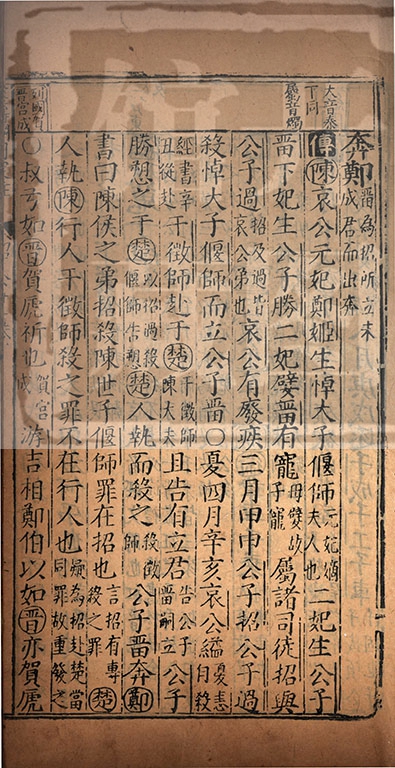 大音泰下同
屬音燭
奔鄭畱為招所立未成君而出奔
傳陳哀公元妃鄭姬生悼大子偃師元妃嫡夫人也二妃生公子
畱下妃生公子勝二妃嬖畱有寵母嬖故子寵屬諸司徒招與
公子過招及過皆哀公弟也哀公有廢疾三月甲申公子招公子過
殺悼大子偃師而立公子畱〇夏四月辛亥哀公縊憂恚自殺
經書辛丑從赴干徵師赴于楚干徵師陳大夫且告有立君告公子畱嗣立公子
勝愬之于楚以招過殺偃師告愬楚人執而殺之殺徵師公子畱奔鄭
書曰陳侯之弟招殺陳世子偃師罪在招也言招有專殺之罪楚
人執陳行人干徵師殺之罪不在行人也疑為招赴楚當同罪故重發之
〇叔弓如晉賀虒祁也賀宮成游吉相鄭伯以如晉亦賀虒